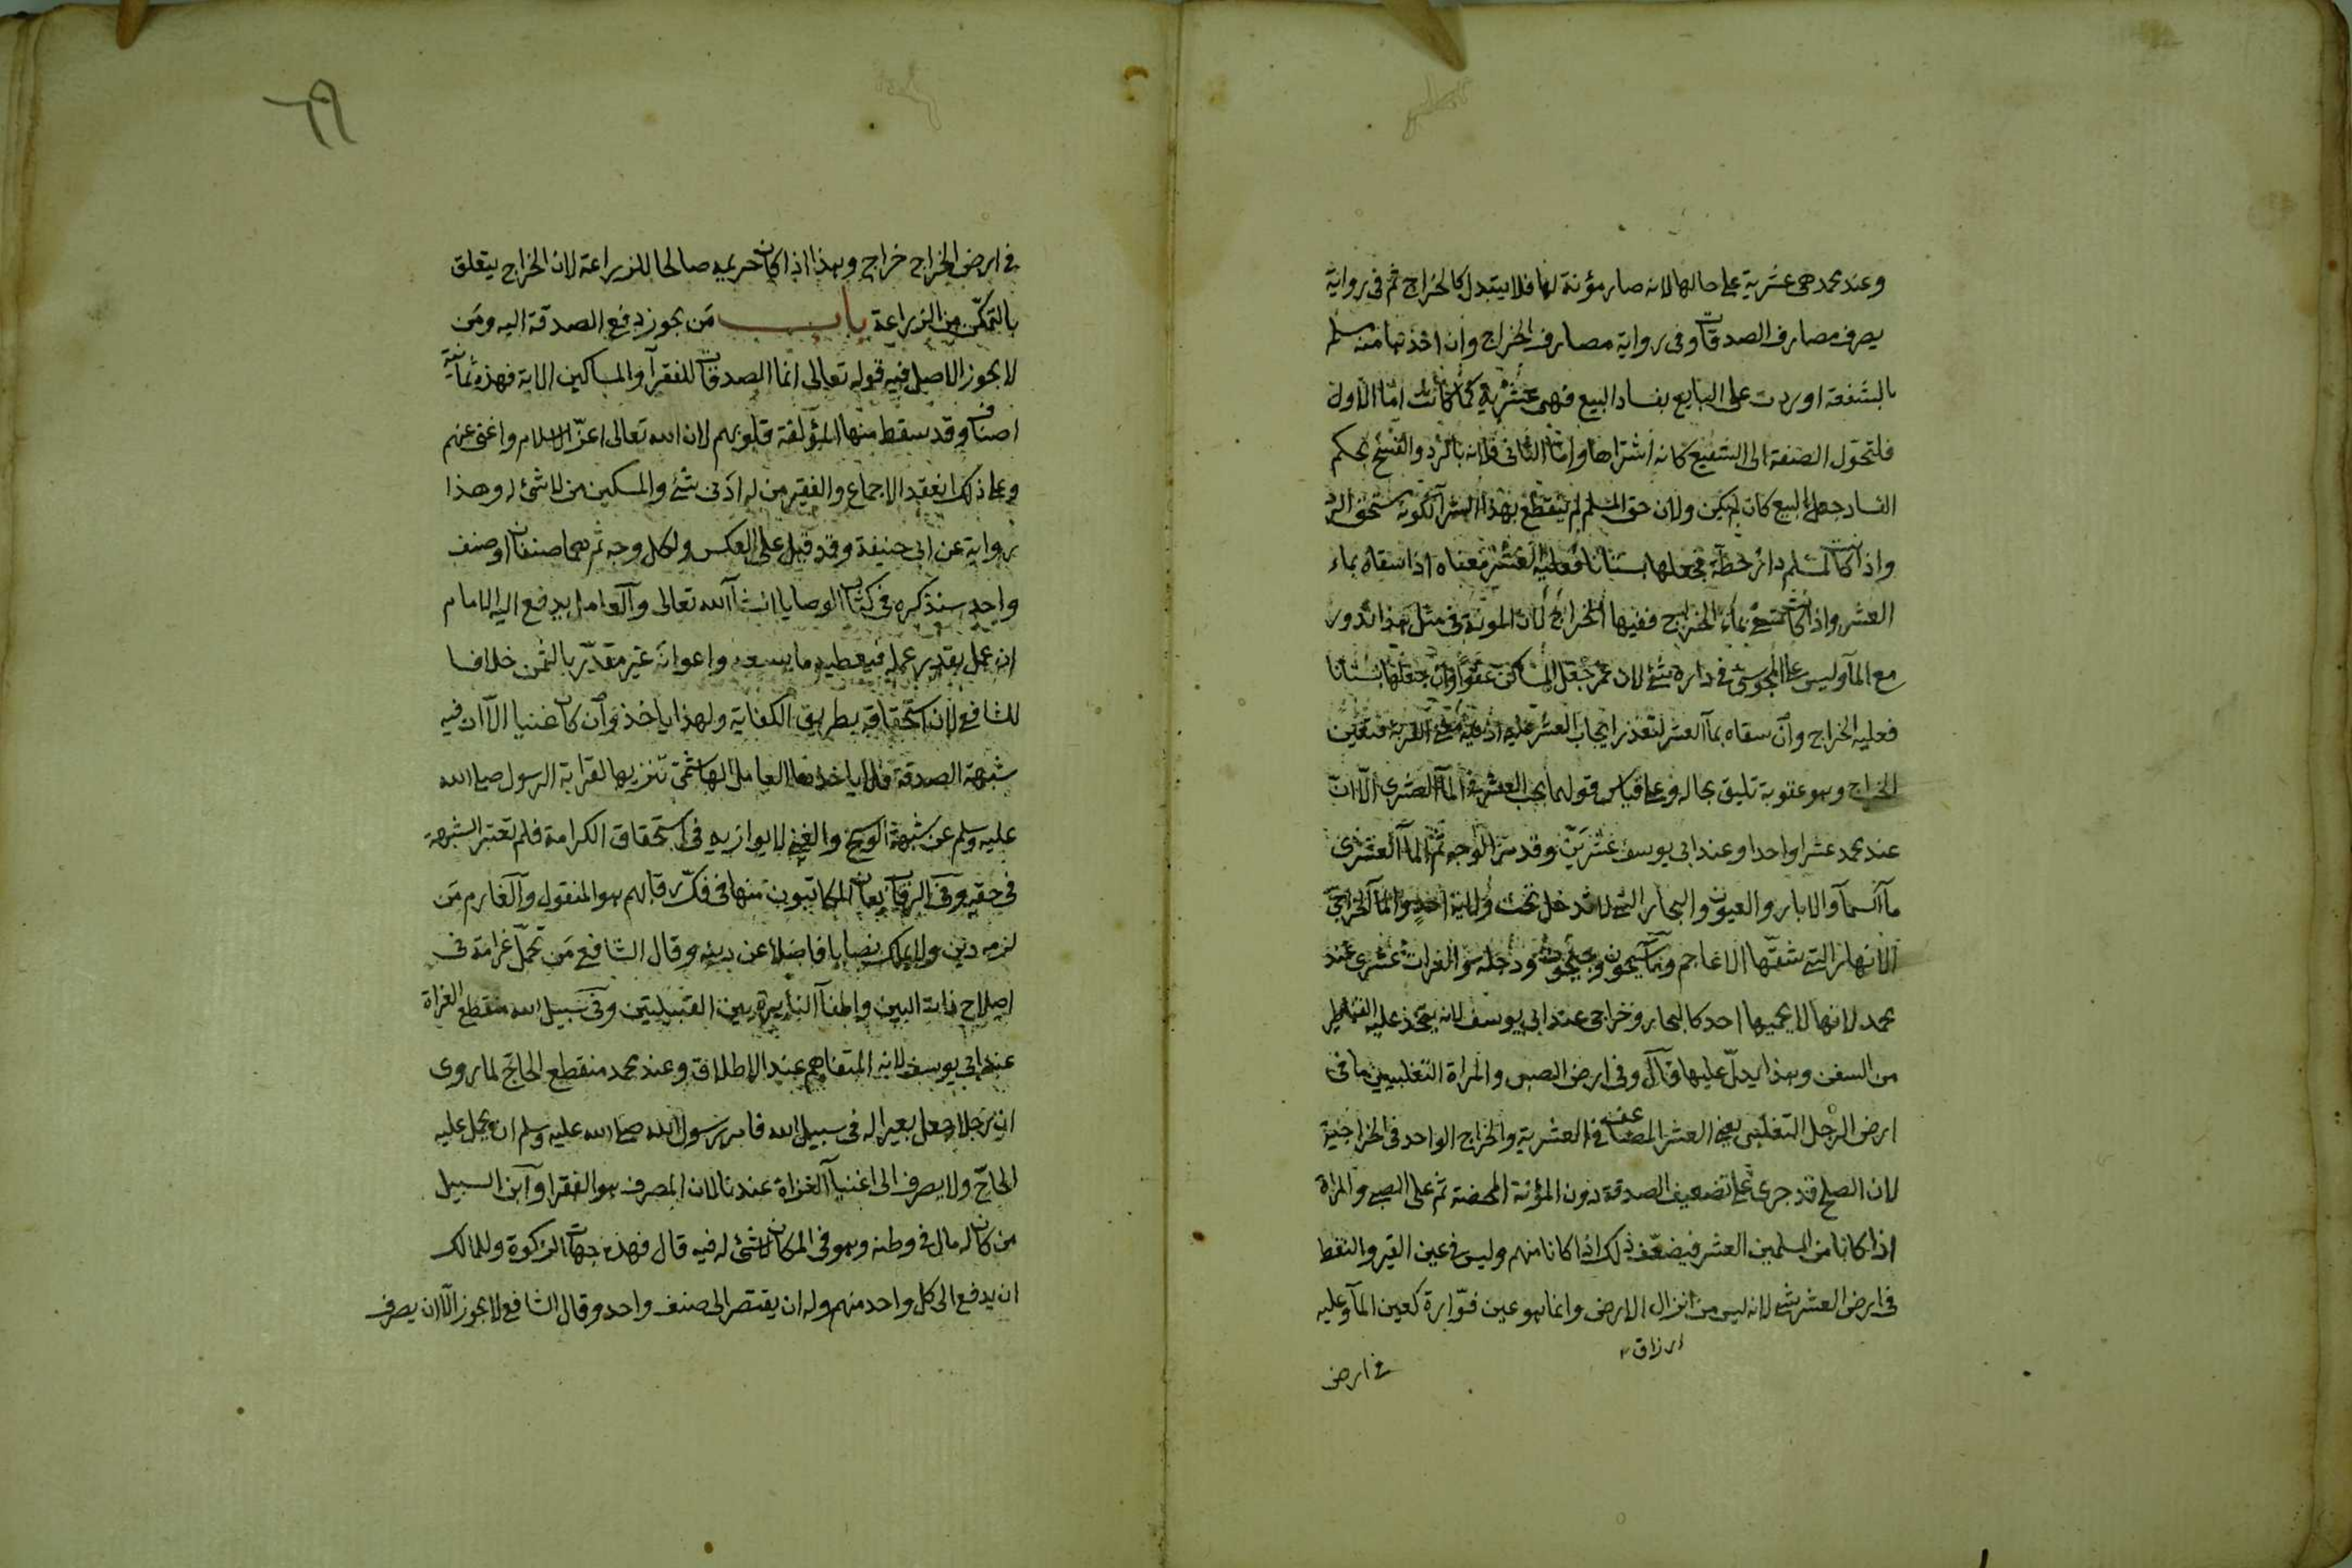 وعند محمد هي عشرية على حالها لانه صار مؤنة لها فلا يتبدل كالخراج ثم في رواية
يصرف مصارف الصدقات وفي رواية مصارف الخراج وان اخذها منه مسلم
بالشفعة او ردت على البايع بفساد البيع فهي عشرية كما كانت اما الاول
فلتحول الصفقة الى الشفيع كانه اشتراها واما الثاني فلانه بالرد والفسخ بحكم
الفساد جعل البيع كان لم يكن ولان حق المسلم لم ينقطع بهذا الشرآ لكونه مستحق الرد
واذا كانت لمسلم دار خطة فجعلها بستانا فعليه العشر معناه اذا سقاه بماء
العشر واذا كانت تسقى بماء الخراج ففيها الخراج لان المونة في مثل هذا تدور
مع المآ وليس على المجوسي في داره شئ لان عمر جعل المساكن عفوا وان جعلها بستانا
فعليه الخراج وان سقاه بمآ العشر لتعذر ايجاب العشر عليه اذ فيه معنى القربة فتعين
الخراج وهو عقوبة تليق بحاله وعلى قياس قولهما يجب العشر في المآ العشرى الا ان
عند محمد عشرا واحدا وعند ابي يوسف عشرين وقد مر الوجه ثم المآ العشرى
مآ السمآ والابار والعيون والبحار التي لا تدخل تحت ولاية احد والمآ الخراجى
الانهار التي شقها الاعاجم ومآ سيحون وجيحون ودجلة والفرات عشرى عند
محمد لانها لا يحميها احد كالبحار وخراجى عند ابي يوسف لانه يتخذ عليه القناطر
من السفن وهذا يد عليها قال وفي ارض الصبى والمراة التغلبيين ما في
ارض الرجل التغلبى يعنى العشر المضاعف في العشرية والخراج الواحد في الخراجية
لان الصلح قد جرى على تضعيف الصدقة دون المؤنة المحضة ثم على الصبى والمراة
اذا كانا من المسلمين العشر فيضعف ذلك اذا كانا منهم وليس في عين القير والنفط
في ارض العشر شئ لانه ليس من انزال الارض وانما هو عين فوارة كعين المآ وعليه
ارزاق
في ارض
٦٩
في ارض الخراج خراج وهذا اذا كان حريمه صالحا للزراعة لان الخراج يتعلق
بالتمكن من الزراعة باب من يجوز دفع الصدقة اليه ومن
لا يجوز الاصل فيه قوله تعالى انما الصدقات للفقرآ والمساكين الاية فهذه ثمانية
اصناف وقد سقط منها المؤلفة قلوبهم لان الله تعالى اعز الاسلام واغنى عنهم
وعلى ذلك انعقد الاجماع والفقير من له ادنى شئ والمسكين من لا شئ له وهذا
رواية عن ابى حنيفة وقد قيل على العكس ولكل وجه ثم هما صنفان او صنف
واحد سنذكره في كتاب الوصايا ان شآ الله تعالى والعامل يدفع اليه الامام
ان عمل بقدر عمله فيعطيه ما يسعه واعوانه غير مقدر بالثمن خلافا
للشافعى لان استحقاقه بطريق الكفاية ولهذا ياخذ وان كان غنيا الا ان فيه
شبهة الصدقة فلا ياخذها العامل الهاشمى تنزيها لقرابة الرسول صلى الله
عليه وسلم عن شبهة الوسخ والغنى لا يوازيه في استحقاق الكرامة فلم تعتبر الشبهة
في حقه وفي الرقاب يعان المكاتبون منها في فك رقابهم هو المنقول والغارم من
لزمه دين ولا يملك نصابا فاضلا عن دينه وقال الشافعى من تحمل غرامة في
اصلاح ذات البين واطفآ النايرة بين القبيلتين وفي سبيل الله منقطع الغزاة
عند ابى يوسف لانه المتفاهم عند الاطلاق وعند محمد منقطع الحاج لما روى
ان رجلا جعل بعيرا له في سبيل الله فامر رسول الله صلى الله عليه وسلم ان يحمل عليه
الحاج ولا يصرف الى اغنيآ الغزاة عندنا لان المصرف هو الفقرا وابن السبيل
من كان له مال في وطنه وهو في المكان لا شئ له فيه قال فهذه جهات الزكوة وللمالك
ان يدفع الى كل واحد منهم وله ان يقتصر الى صنف واحد وقال الشافعى لا يجوز الا ان يصرف